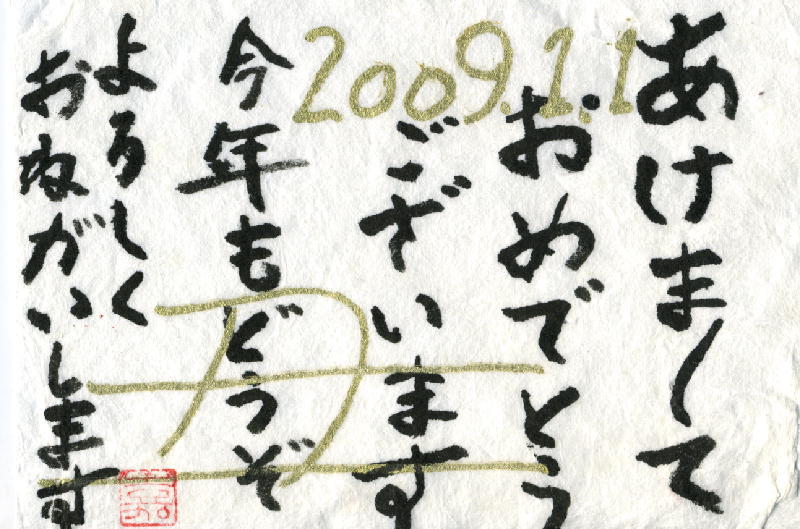 あけまして
おめでとう
ございます
今年もどうぞ
よろしく
おねがいします
2009.1.1